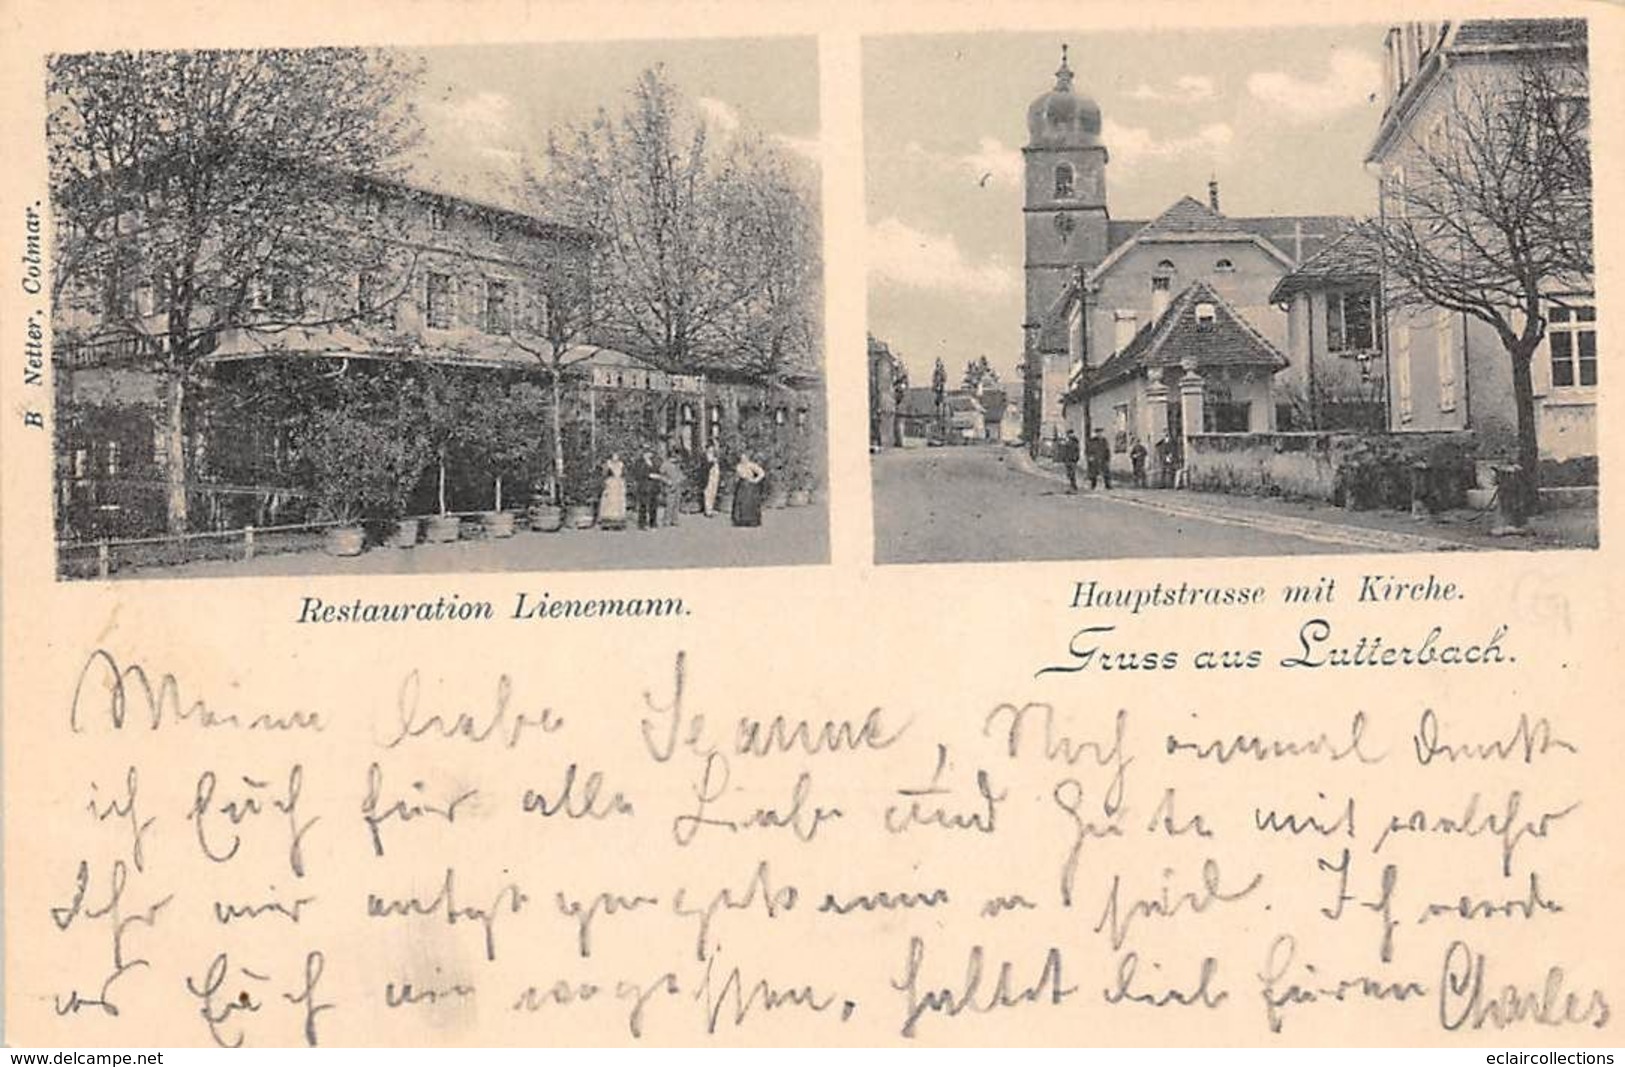 B Netter, Colmar.
Restauration Lienemann.
Hauptstrasse mit Kirche.
Gruss aus Lutterbach.
Meine liebe Jeanne, Noch einmal danke
ich Euch für alle Liebe und Güte mit welcher
Ihr mir entgegengekommen seid. Ich werde
es Euch nie vergessen, haltet lieb Euren Charles
www.delcampe.net
eclaircollections